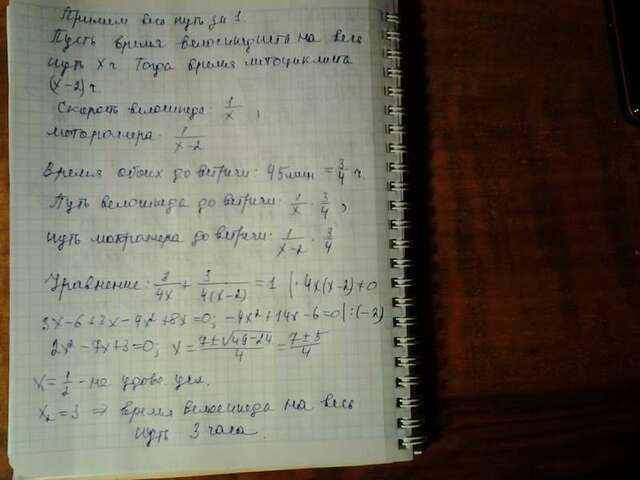 Примем весь путь за 1.
Пусть время велосипедиста на весь
путь x ч Тогда время мотоциклиста
(x-2) ч.
Скорость велосипеда: 1/x ,
мотороллера: 1/(x-2)
Время обоих до встречи: 45 мин = 3/4 ч.
Путь велосипеда до встречи: 1/x · 3/4 ,
путь мотороллера до встречи: 1/(x-2) · 3/4
Уравнение: 3/(4x) + 3/(4(x-2)) = 1 | · 4x(x-2) ≠ 0
3x-6+3x-4x²+8x=0; -4x²+14x-6=0 |:(-2)
2x²-7x+3=0; x = (7±√(49-24))/4 = (7±5)/4
x₁ = 1/2 - не удовл. усл.
x₂ = 3 ⇒ время велосипеда на весь
путь 3 часа.